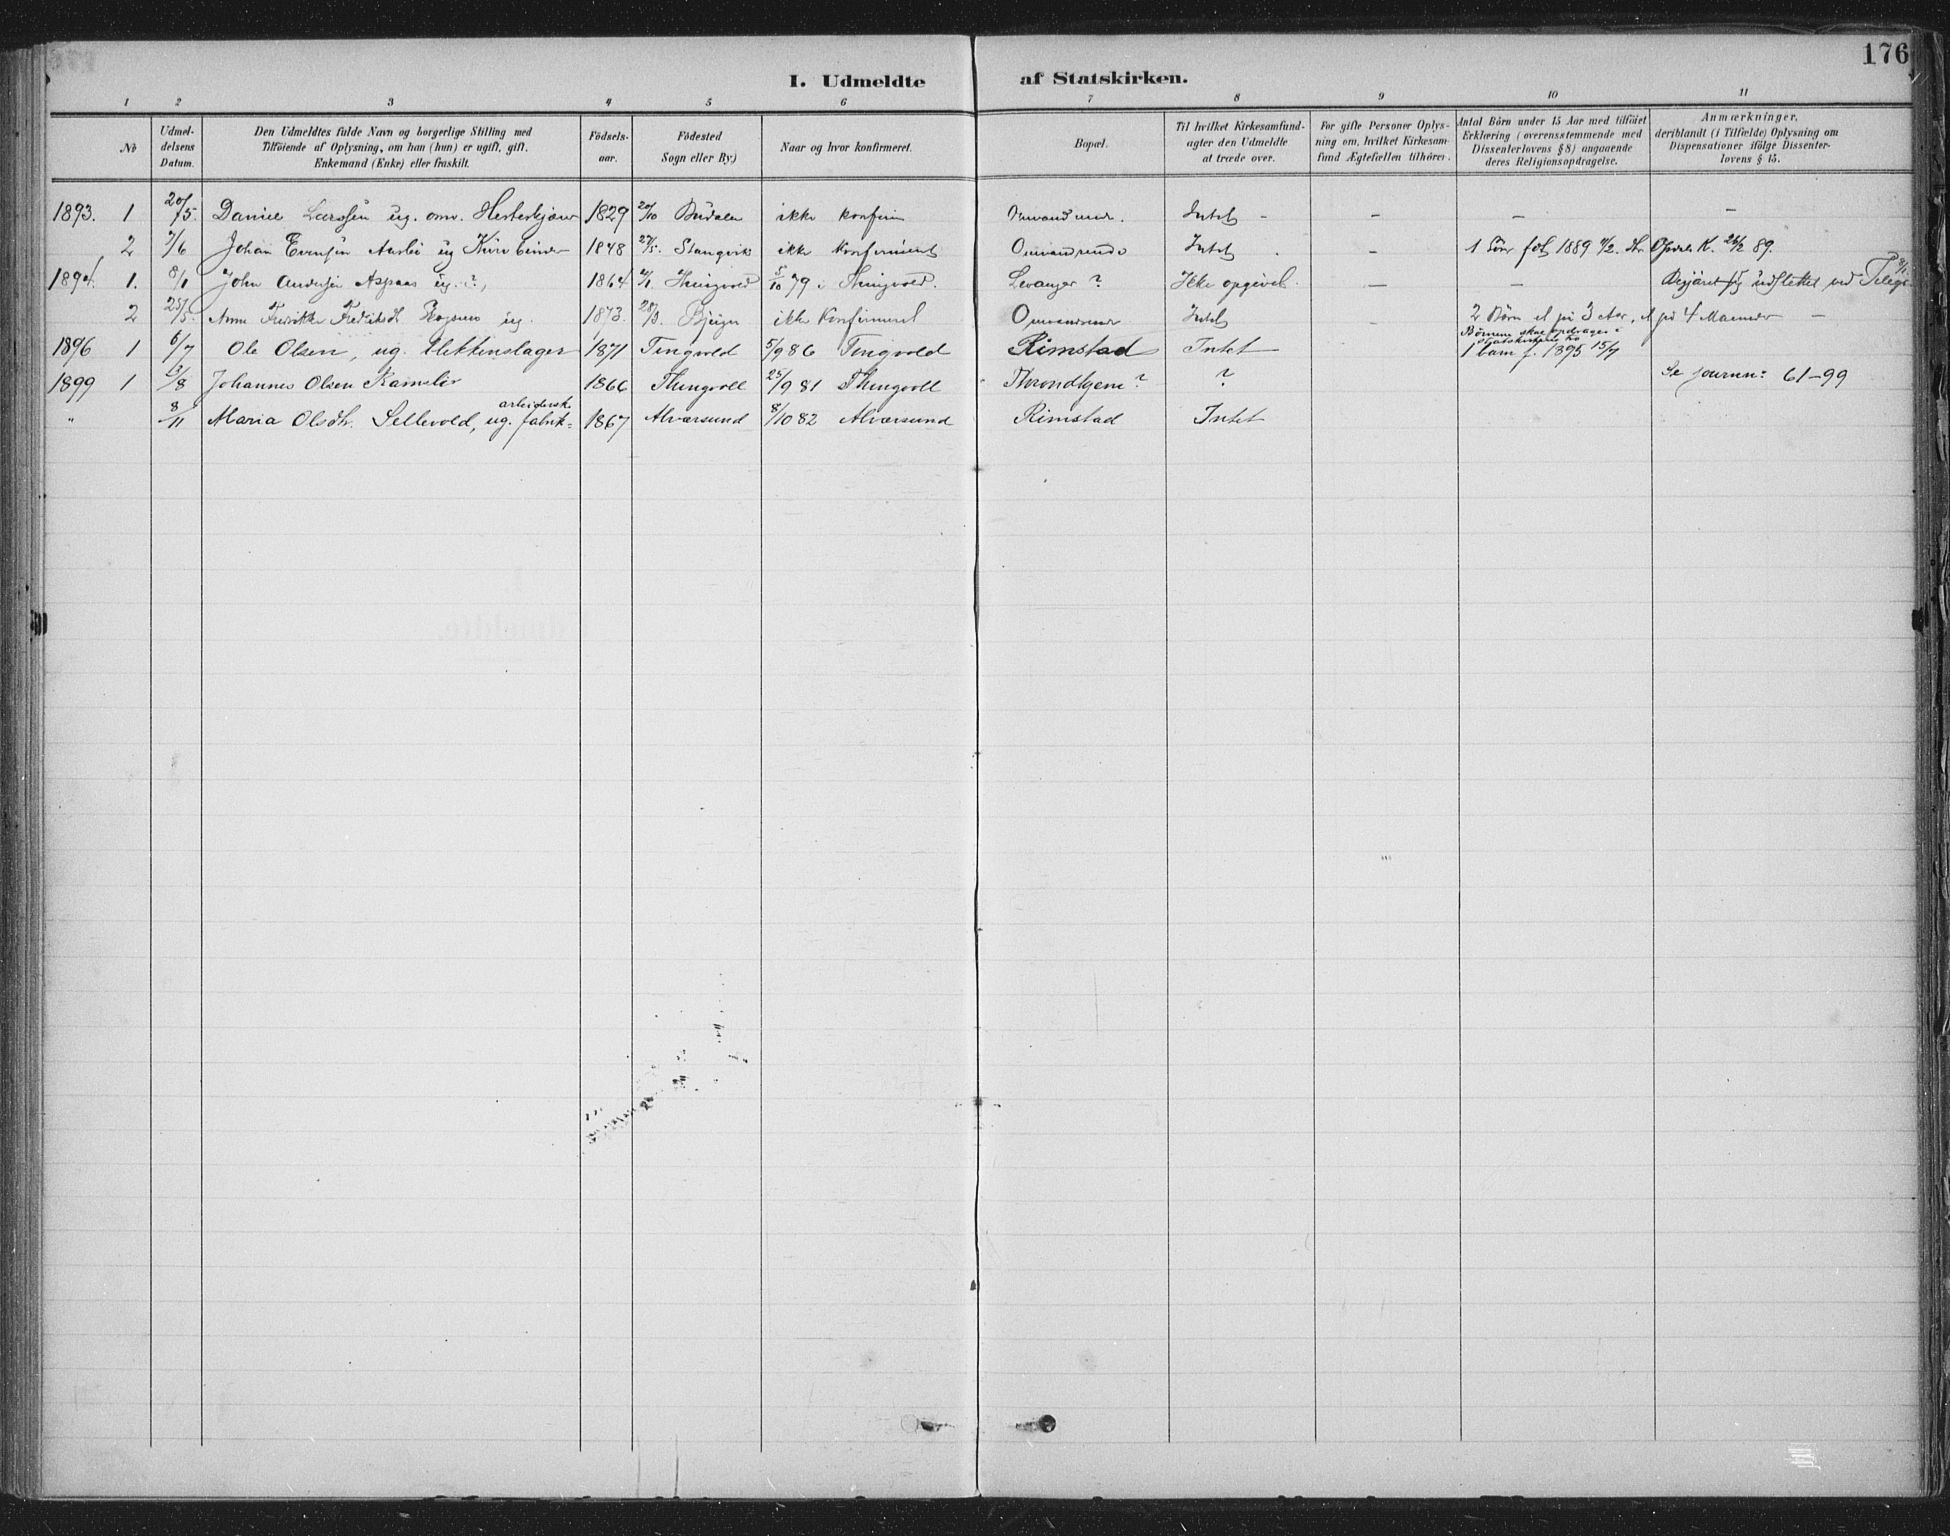 176
I. Udmeldte af Statskirken.
1 2 3 4 5 6 7 8 9 10 11
No
Udmel-
delsens
Datum.
Den Udmeldtes fulde Navn og borgerlige Stilling med
Tilföiende af Oplysning, om han (hun) er ugift, gift,
Enkemand (Enke) eller fraskilt.
Födsels-
aar.
Födested
Sogn eller By)
Naar og hvor konfirmeret.
Bopæl.
Til hvilket Kirkesamfund-
agter den Udmeldte
at træde over.
For gifte Personer Oplys-
ning om, hvilket Kirkesam-
fund Ægtefællen tilhörer.
Antal Börn under 15 Aar med tilföiet
Erklæring (overensstemmende med
Dissenterlovens § 8) angaaende
deres Religionsopdragelse.
Anmærkninger,
deriblandt (i Tilfælde) Oplysning om
Dispensationer ifölge Dissenter-
lovens § 15.
1893. 1 20/5. Daniel Larssen ug. omv. 1829 20/10 Budalen ikke konfirm Omvandrende. Intet - - - -
2 7/6 Johan Evensen ug 1848 27/5. Stangvik ikke Konfirmeret Omvandrende Intet - 1 Sön föd 1889 11/2. Opdals K. 24/2 89.
1894. 1. 8/1 John Andersen Aspaas ug.?, 1864 Thingvold 5/10 79 i Thingvold. Levanger? Ikke opgivet. - - Begjæret sig udslettet ved Telegr. 
2 25/5. Anne Fredrikke Fredriksdt. ug. 1873. 28/3 Bjugn ikke Konfirmeret Omvandrende Intet 2 Börn et på 3 Aar, et på 4 Maaneder -
1896 1 6/7 Ole Olsen, ug. 1871 Tingvold 5/9 86 Tingvold Rimstad Intet Börnene skal opdrages i
Statskirkens
1 barn f. 1895 15/7
1899 1 13/8 Johannes Olsen 1866 Thingvoll 25/9 81 Thingvoll Throndhjem? ? Se journ: 61-99
" 8/11 Maria Olsdtr. Sellevold, ug. fabrik- arbeidersk. 1867 Alværsund 8/10 82 Alværsund Rimstad Intet